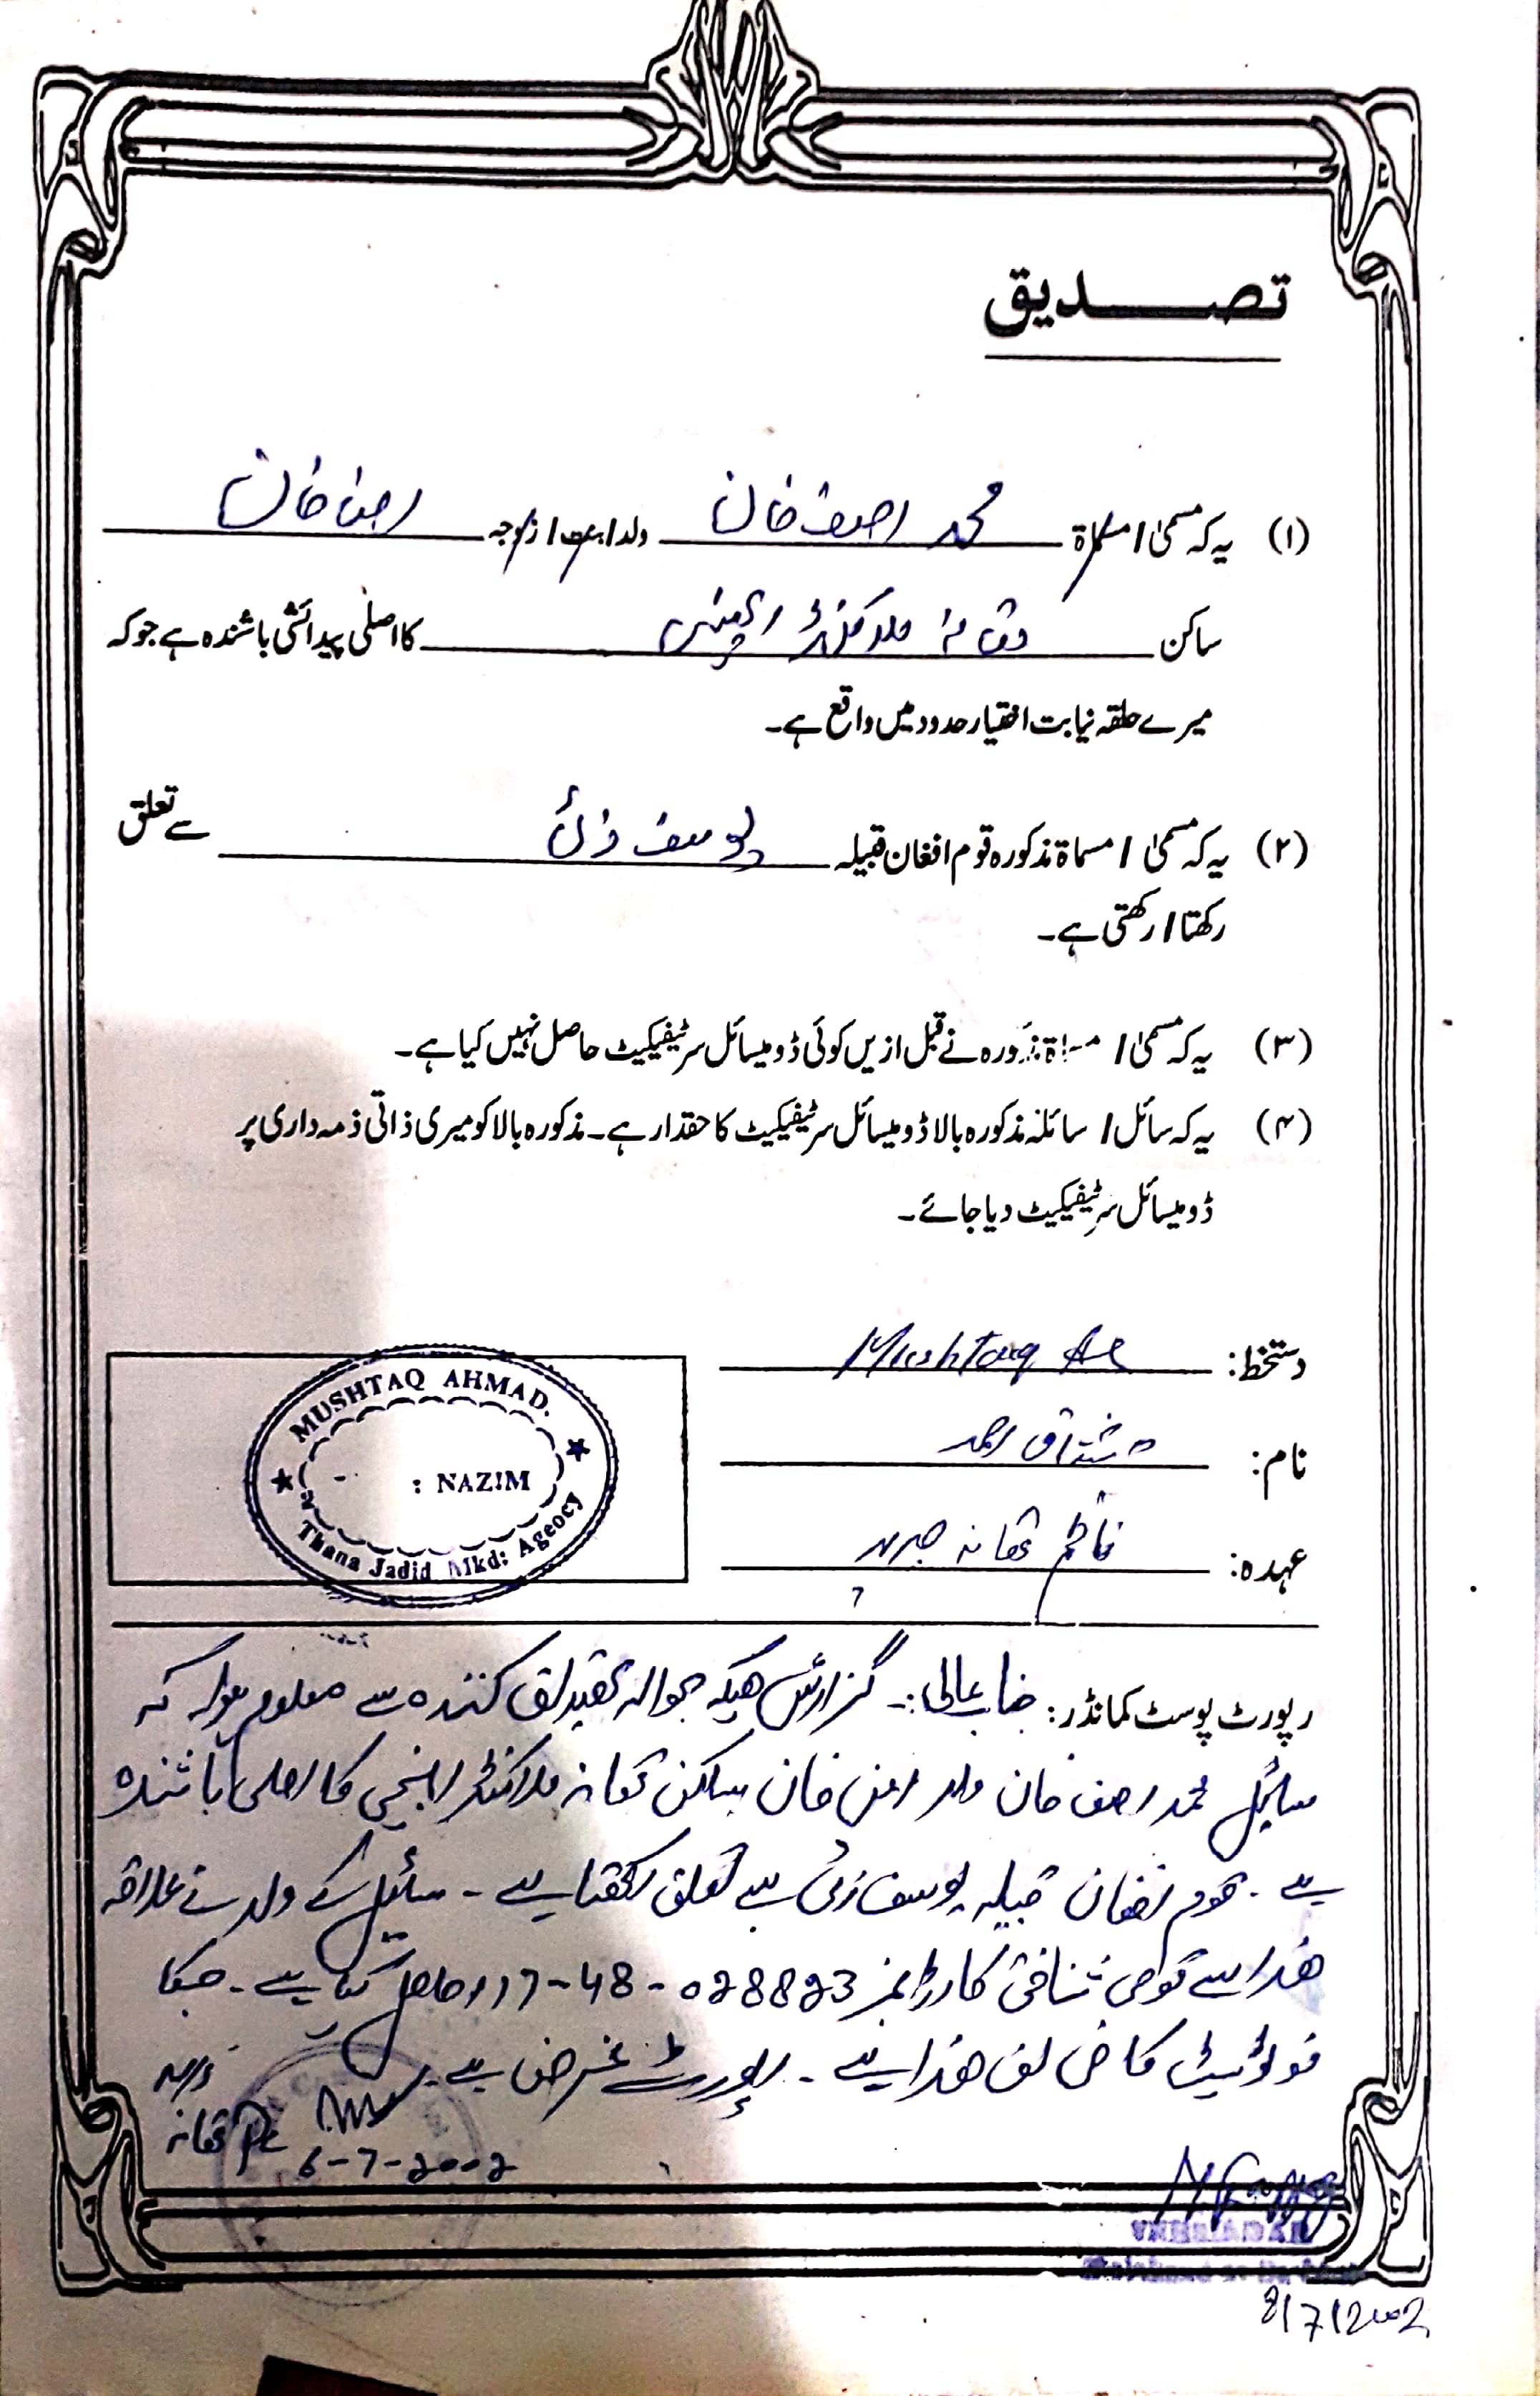 تصدیق
(۱) یہ کہ مسمیٰ / مسماۃ محمد اصف خان ولد / بنت / زوجہ خان
ساکن تھانہ ملاکنڈ ایجنسی کا اصلی پیدائشی باشندہ ہے جو کہ
میرے حلقہ نیابت اختیار حدود میں واقع ہے۔
(۲) یہ کہ مسمیٰ / مسماۃ مذکورہ قوم افغان قبیلہ یوسف زئی سے تعلق
رکھتا / رکھتی ہے۔
(۳) یہ کہ مسمیٰ / مسماۃ مذکورہ نے قبل ازیں کوئی ڈومیسائل سرٹیفیکیٹ حاصل نہیں کیا ہے۔
(۴) یہ کہ سائل / سائلہ مذکورہ بالا ڈومیسائل سرٹیفیکیٹ کا حقدار ہے۔ مذکورہ بالا کو میری ذاتی ذمہ داری پر
ڈومیسائل سرٹیفیکیٹ دیا جائے۔
دستخط: Mushtaq
نام: مشتاق احمد
عہدہ: ناظم تھانہ جدید
MUSHTAQ AHMAD.
: NAZIM
Thana Jadid Mkd: Agency
رپورٹ پوسٹ کمانڈر: جناب عالی:۔ گزارش ھیکہ بحوالہ تصدیق کنندہ سے معلوم ہوا کہ
سائیل محمد اصف خان ولد خان ساکن تھانہ ملاکنڈ ایجنسی کا اصلی باشندہ
ہے ۔ قوم افغان قبیلہ یوسف زئی سے تعلق رکھتا ہے ۔ سائیل کے والد نے علاقہ
ھذا سے قومی شناختی کارڈ نمبر 117-48-028823 حاصل کیا ہے ۔ جسکا
فوٹو سٹیٹ کاپی لف ھذا ہے ۔ رپورٹ عرض ہے ۔
تھانہ
6-7-2002
8/7/2002